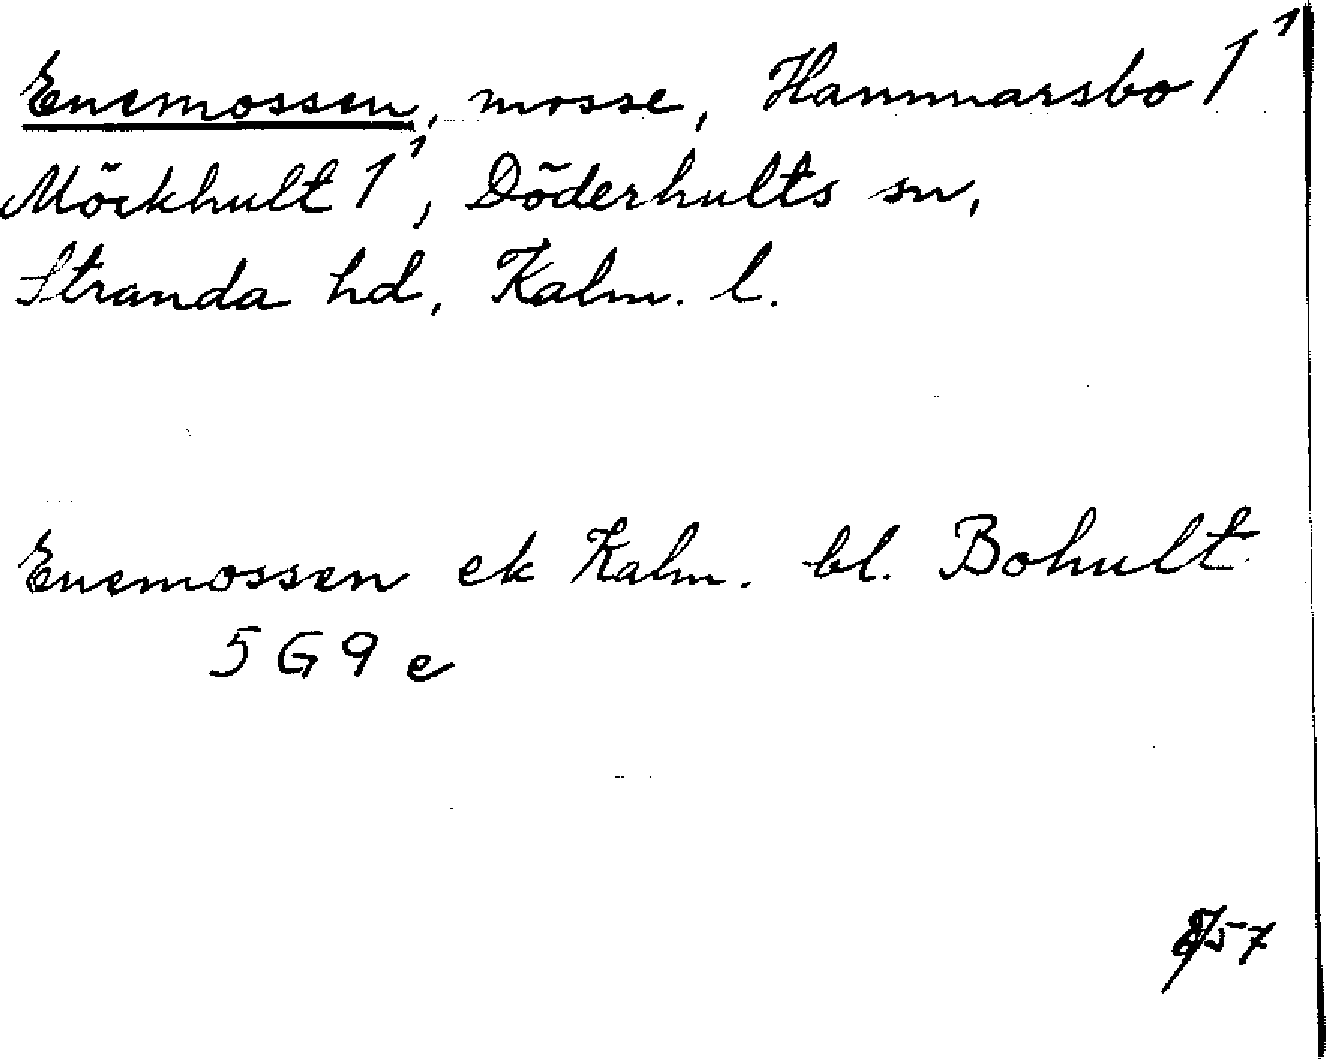 Enemossen, mosse, Hammarsbo 1¹
Möckhult 1¹, Döderhults sn,
Stranda hd, Kalm. l.
Enemossen ek Kalm. bl. Bohult
5 G 9 e